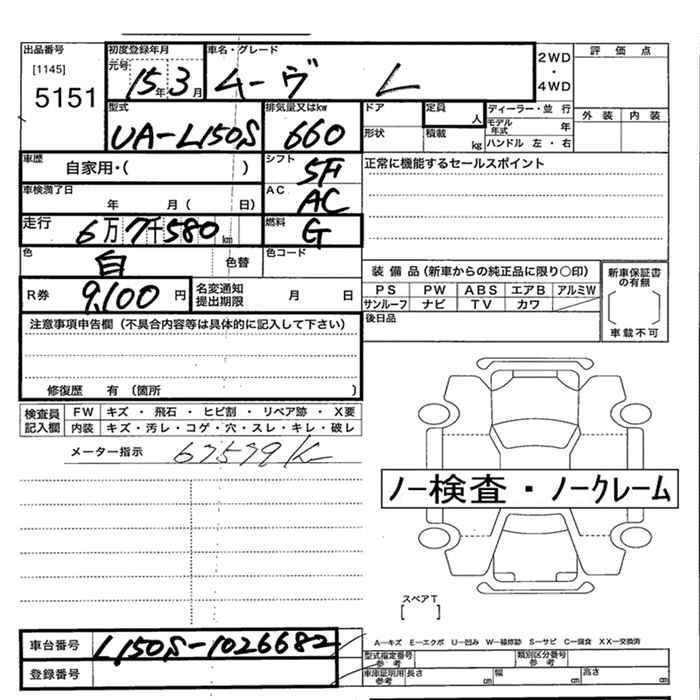 出品番号
[1145]
5151
初度登録年月
元号 15年 3月
車名・グレード
ムーヴ L
2WD
・
4WD
評価点
外装 内装
型式
UA-L150S
排気量又はkw
660
ドア
形状
定員
人
積載
kg
ディーラー・並行
モデル年式 年
ハンドル 左・右
車歴
自家用・( )
シフト
5F
正常に機能するセールスポイント
車検満了日
年 月( 日)
AC
AC
走行
6万7千580km
燃料
G
色
白
色替
色コード
R券
9,100円
名変通知
提出期限
月 日
装備品(新車からの純正品に限り○印)
PS PW ABS エアB アルミW
サンルーフ ナビ TV カワ
新車保証書
の有無
車載不可
後日品
注意事項申告欄(不具合内容等は具体的に記入して下さい)
修復歴 有(箇所 )
検査員
記入欄
FW キズ・飛石・ヒビ割・リペア跡・X要
内装 キズ・汚レ・コゲ・穴・スレ・キレ・破レ
メーター指示
67579K
ノー検査・ノークレーム
スペアT
[ ]
車台番号
L150S-1026682
登録番号
A―キズ E―エクボ U―凹み W―補修跡 S―サビ C―腐食 XX―交換済
型式指定番号
参考
類別区分番号
参考
車庫証明用
参考
長さ cm 幅 cm 高さ cm